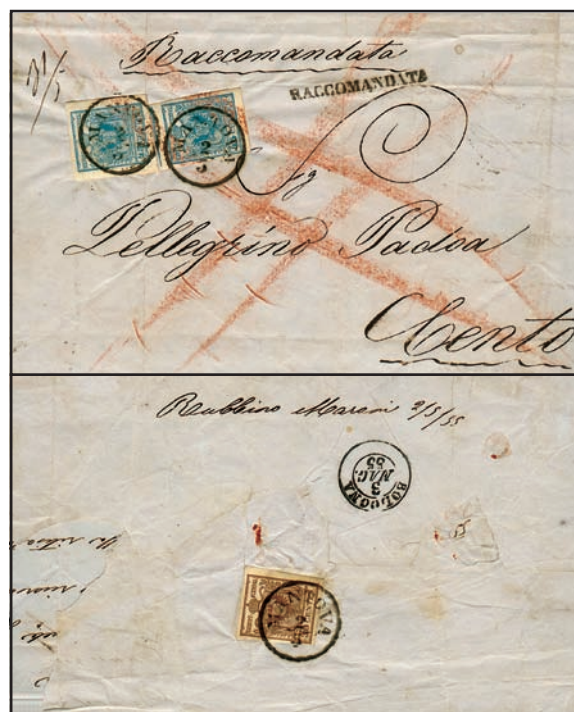 Raccomandata
RACCOMANDATA
MANTOVA
2/5
MANTOVA
2/5
Sig
Pellegrino Padoa
Cento
Rabbino Maroni 2/5/55
BOLOGNA
3
MAG.
55
MANTOVA
2/5